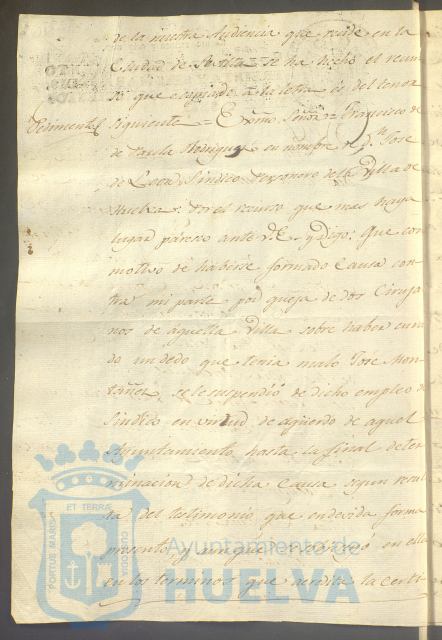 de la nuestra Audiencia que reside en la
Ciudad de Sevilla se ha hecho el recur
so que copiado a la letra es del tenor
Pedimento siguiente = Exmo Señor = Francisco de
de Paula Rodriguez en nombre de Dn Jose
de Leon Sindico Personero de la Villa de
Huelva: por el recurso que mas haya
lugar parezco ante V.E. y Digo: Que con
motivo de haberse formado Causa con
tra mi parte por queja de dos Ciruja
nos de aquella Villa sobre haber cura
do un dedo que tenia malo Jose Mon
tañez, se le suspendió de dicho empleo de
Sindico en virtud de acuerdo de aquel
Ayuntamiento hasta la final deter
minacion de dicha Causa segun resul
ta del testimonio que en devida forma
presento, y aunque se en ella
en los terminos que acredita la certi
PORTUS MARIS ET TERRAE CUSTODIA
Ayuntamiento de
HUELVA